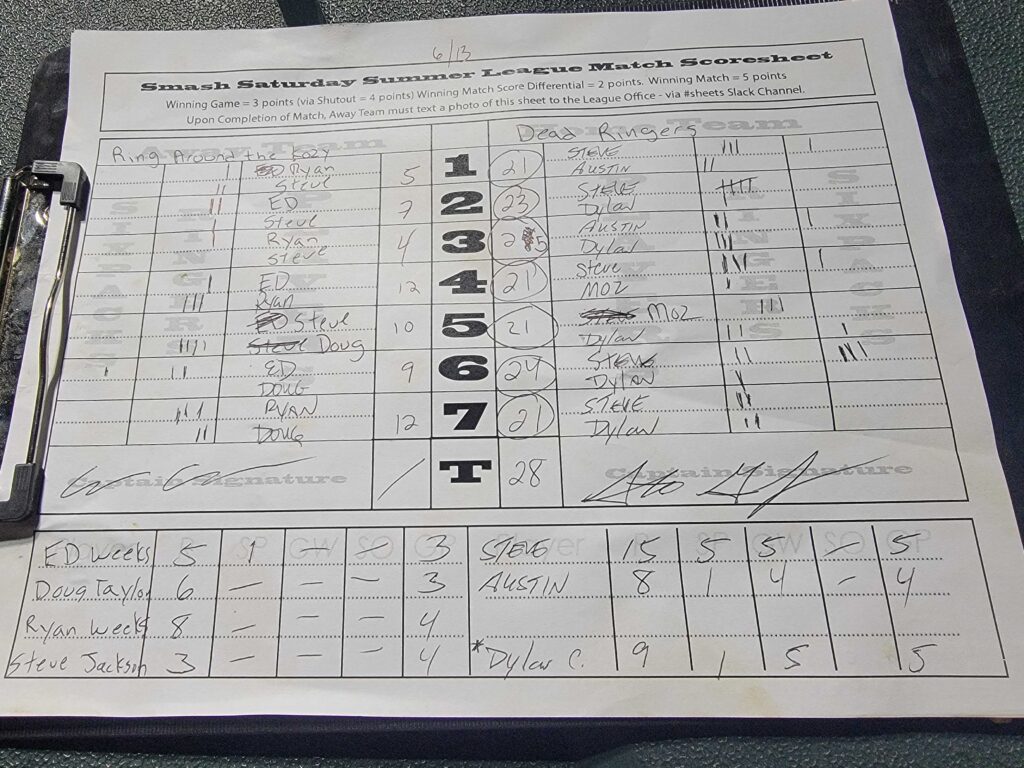 6/13
Smash Saturday Summer League Match Scoresheet
Winning Game = 3 points (via Shutout = 4 points) Winning Match Score Differential = 2 points. Winning Match = 5 points
Upon Completion of Match, Away Team must text a photo of this sheet to the League Office - via #sheets Slack Channel.
Away Team Home Team
Ring Around the Rozy Dead Ringers
Ryan 5 1 21 STEVE
Steve AUSTIN
ED 7 2 23 STEVE
Steve Dylan
Ryan 4 3 AUSTIN
Steve Dylan
ED 12 4 21 Steve
Ryan MOZ
Steve 10 5 21 MOZ
Doug Dylan
ED 9 6 24 STEVE
DOUG Dylan
RYAN 12 7 21 STEVE
DOUG Dylan
Captain Signature / T 28 Captain Signature
SIXPACKS RINGERS RINGERS SIXPACKS
Player R SP GW SO GP Player R SP GW SO GP
ED Weeks 5 1 — — 3 STEVE 15 5 5 — 5
Doug Taylor 6 — — — 3 AUSTIN 8 1 4 - 4
Ryan Weeks 8 — — — 4
Steve Jackson 3 — — — 4 *Dylan C. 9 1 5 5